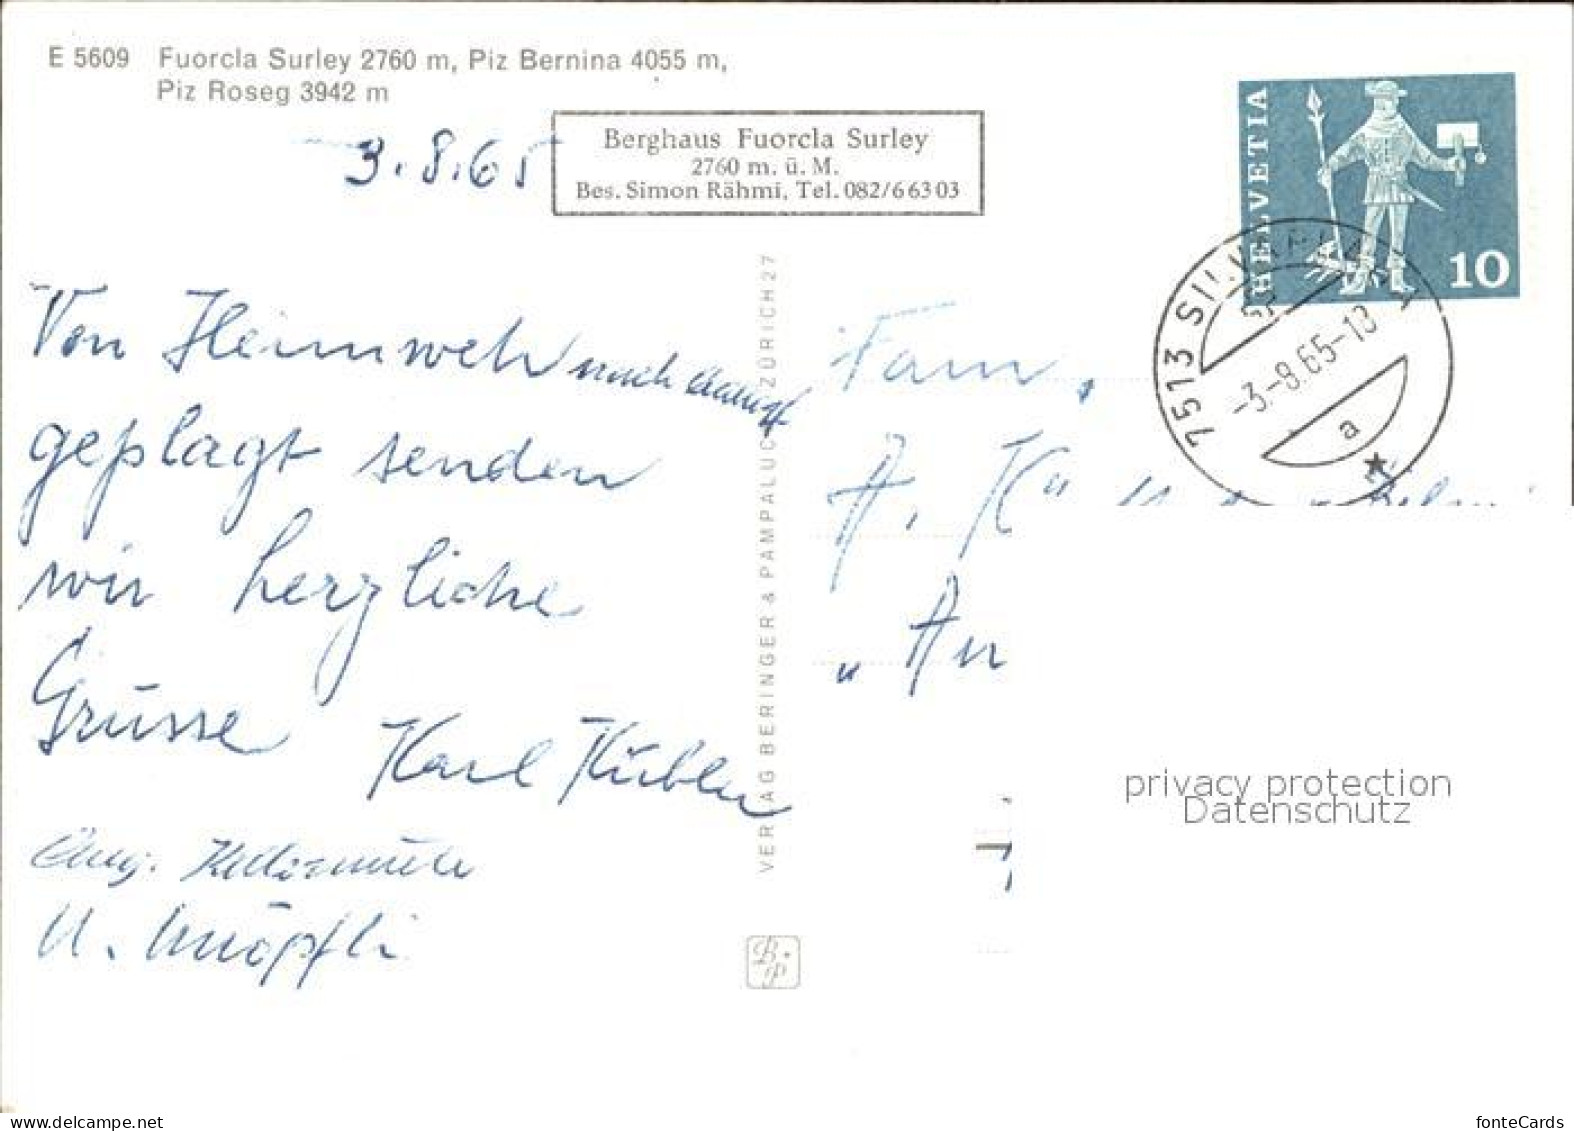 E 5609 Fuorcla Surley 2760 m, Piz Bernina 4055 m,
Piz Roseg 3942 m
3.8.65
Berghaus Fuorcla Surley
2760 m. ü. M.
Bes. Simon Rähmi, Tel. 082/6 63 03
HELVETIA
10
7513 SILVAPLANA
-3.-8.65-13
a
Von Heimweh nach
geplagt senden
wir herzliche
Grüsse Karl Kübler
Aug.
U. Knöpfli
Fam.
A.
VERLAG BERINGER & PAMPALUCHI ZÜRICH 27
B.P
privacy protection
Datenschutz
my-main-stay.net
fonteCards